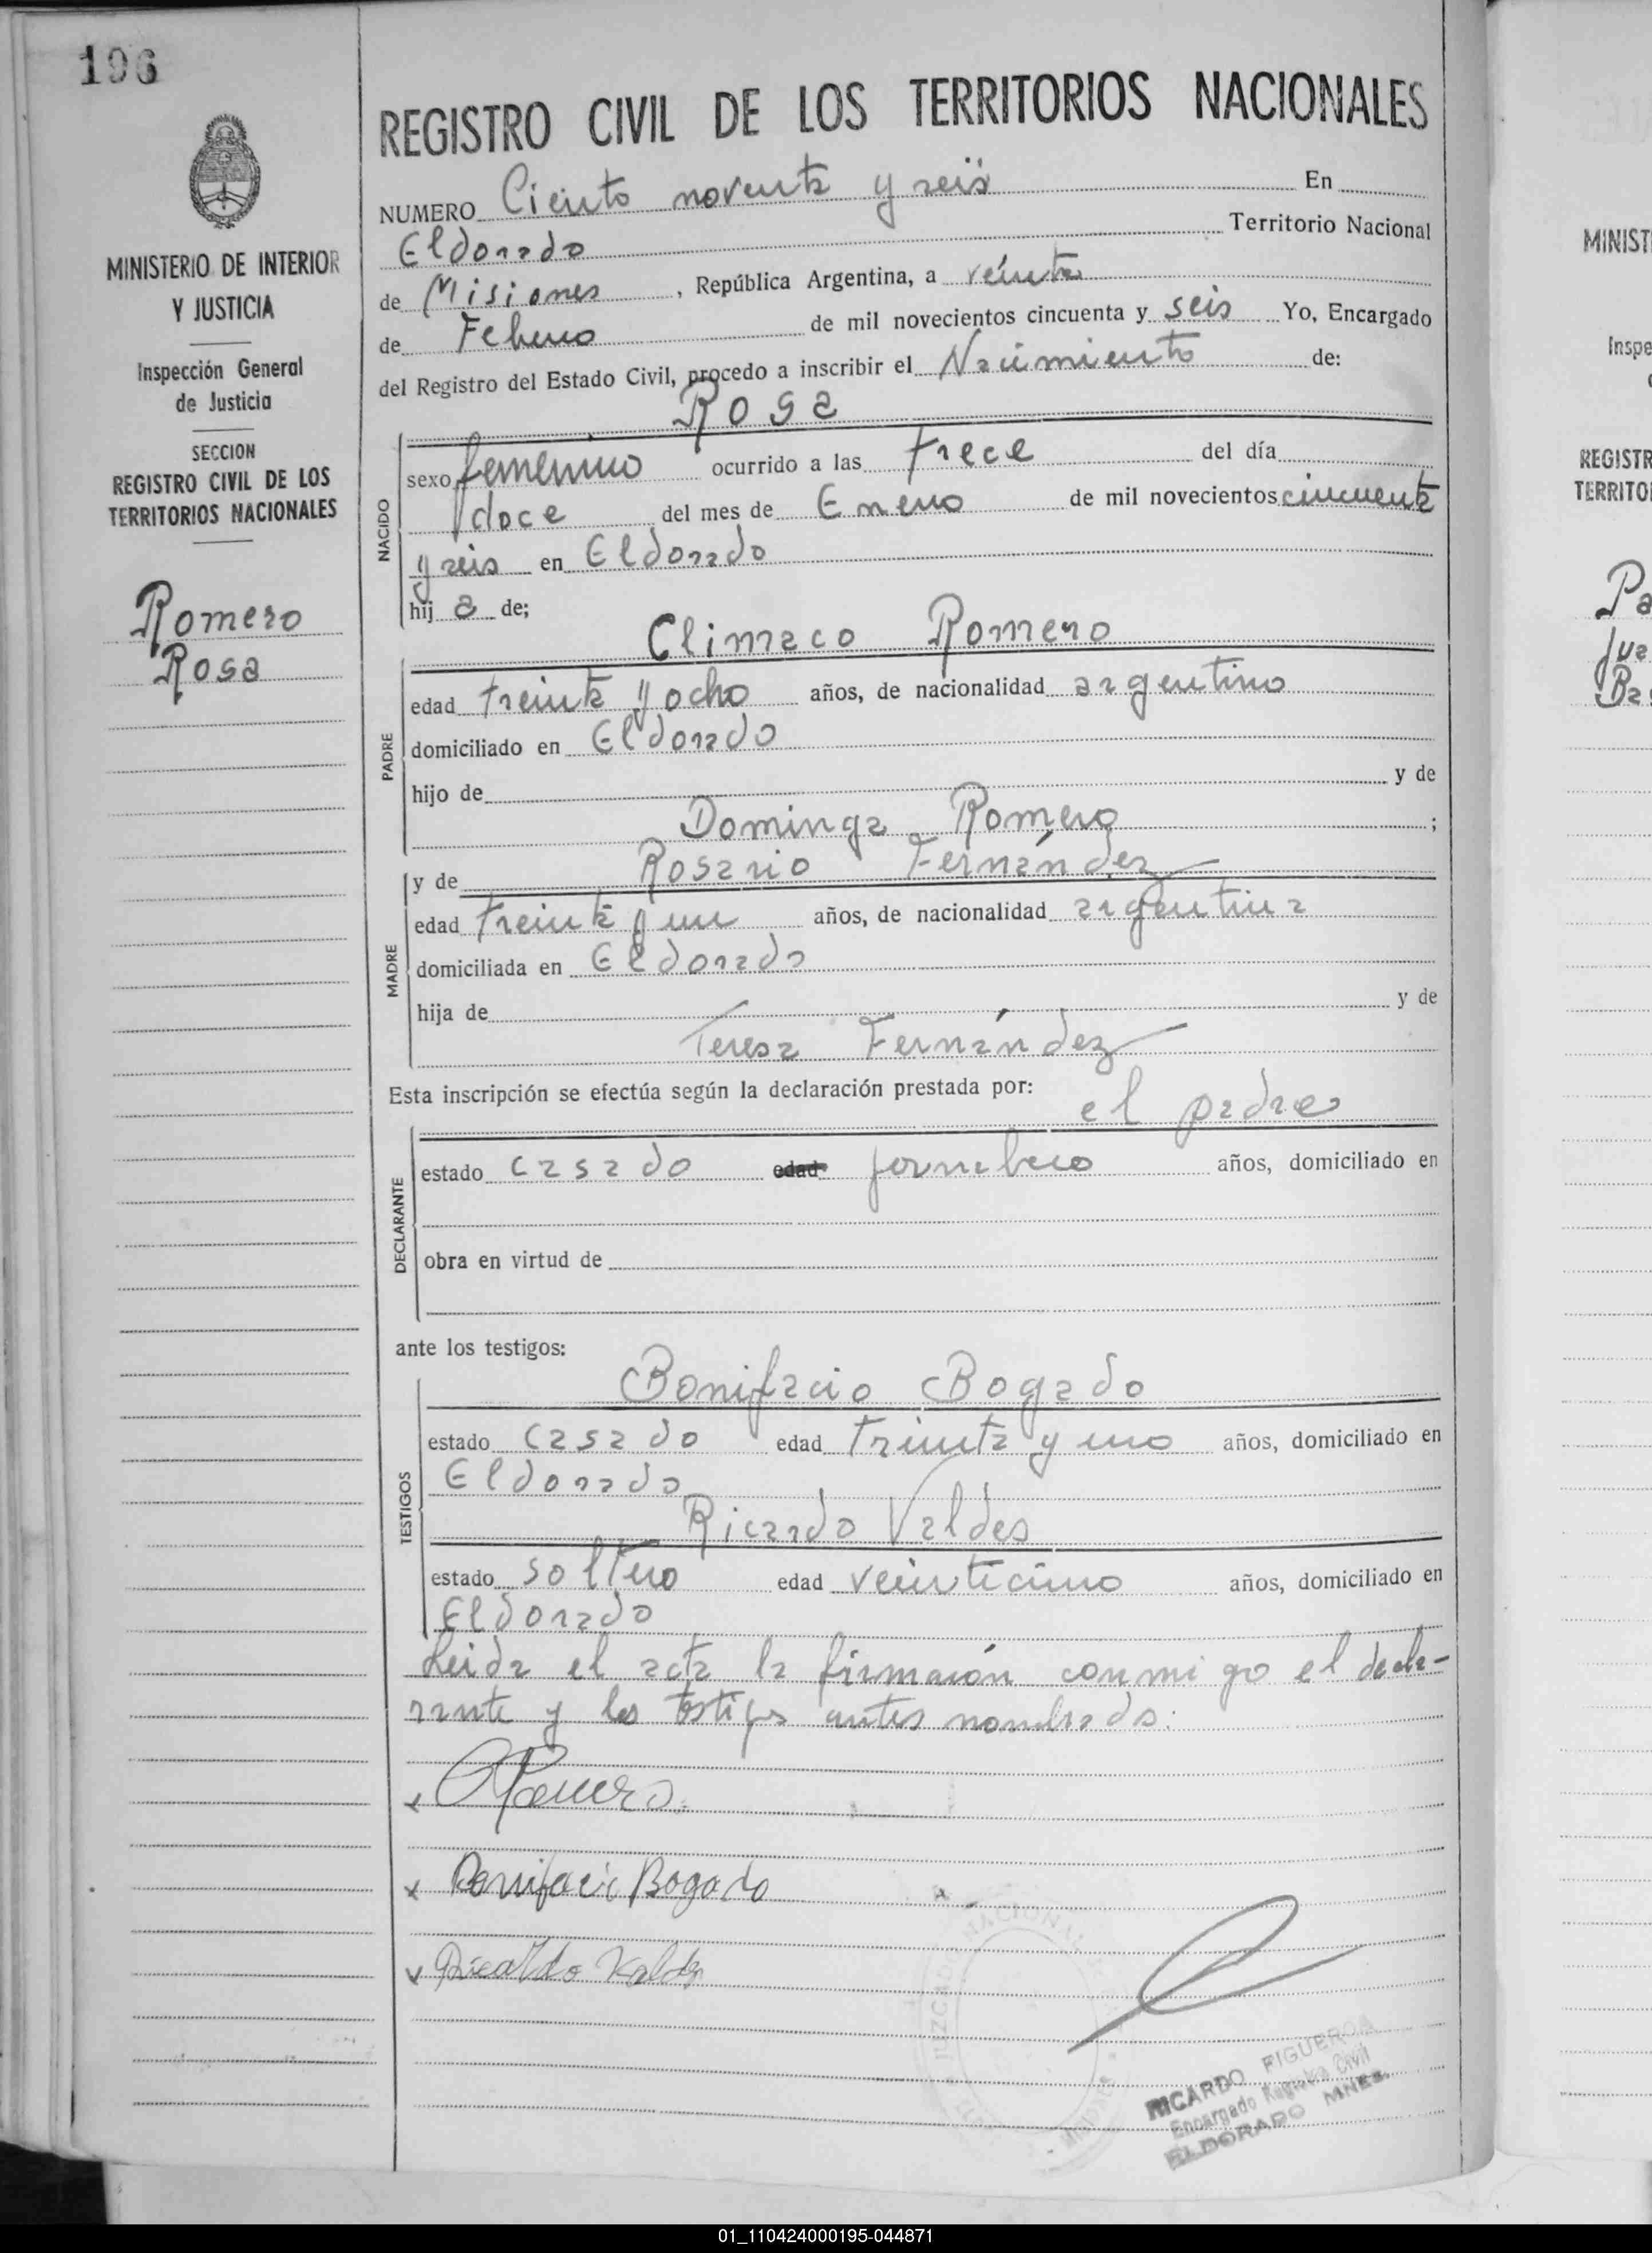 196
MINISTERIO DE INTERIOR
Y JUSTICIA
Inspección General
de Justicia
SECCION
REGISTRO CIVIL DE LOS
TERRITORIOS NACIONALES
Romero
Rosa
REGISTRO CIVIL DE LOS TERRITORIOS NACIONALES
NUMERO Ciento noventa y seis En
Eldorado Territorio Nacional
de Misiones, República Argentina, a veinte
de Febrero de mil novecientos cincuenta y seis Yo, Encargado
del Registro del Estado Civil, procedo a inscribir el Nacimiento de:
Rosa
NACIDO
sexo femenino ocurrido a las trece del día
doce del mes de Enero de mil novecientos cincuenta
y seis en Eldorado
hij a de;
Climaco Romero
PADRE
edad treinta y ocho años, de nacionalidad argentino
domiciliado en Eldorado
hijo de y de
Dominga Romero ;
y de Rosario Fernández
MADRE
edad treinta y un años, de nacionalidad argentina
domiciliada en Eldorado
hija de y de
Teresa Fernández
Esta inscripción se efectúa según la declaración prestada por: el padre
DECLARANTE
estado casado edad jornalero años, domiciliado en
obra en virtud de
ante los testigos:
Bonifacio Bogado
TESTIGOS
estado casado edad Treinta y uno años, domiciliado en
Eldorado
Ricardo Valdes
estado soltero edad veinticinco años, domiciliado en
Eldorado
Leida el acta la firmarón conmigo el decla-
rante y los testigos antes nombrados.
x Romero
x Bonifacio Bogado
x Ricardo Valdes
JUZGADO NACIONAL
RICARDO FIGUEROA
Encargado Registro Civil
ELDORADO MNES.
MINIST
Inspe
REGISTR
TERRITO
Pa
Jua
Ba
01_110424000195-044871